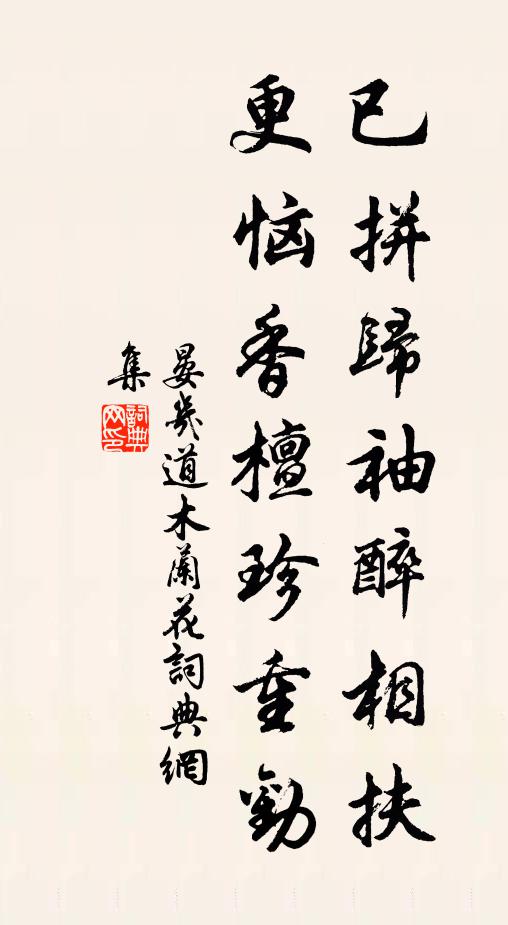 已拼歸袖醉相扶
更恼香檀珍重勸
晏幾道木蘭花詞典網
集
詞典
网印